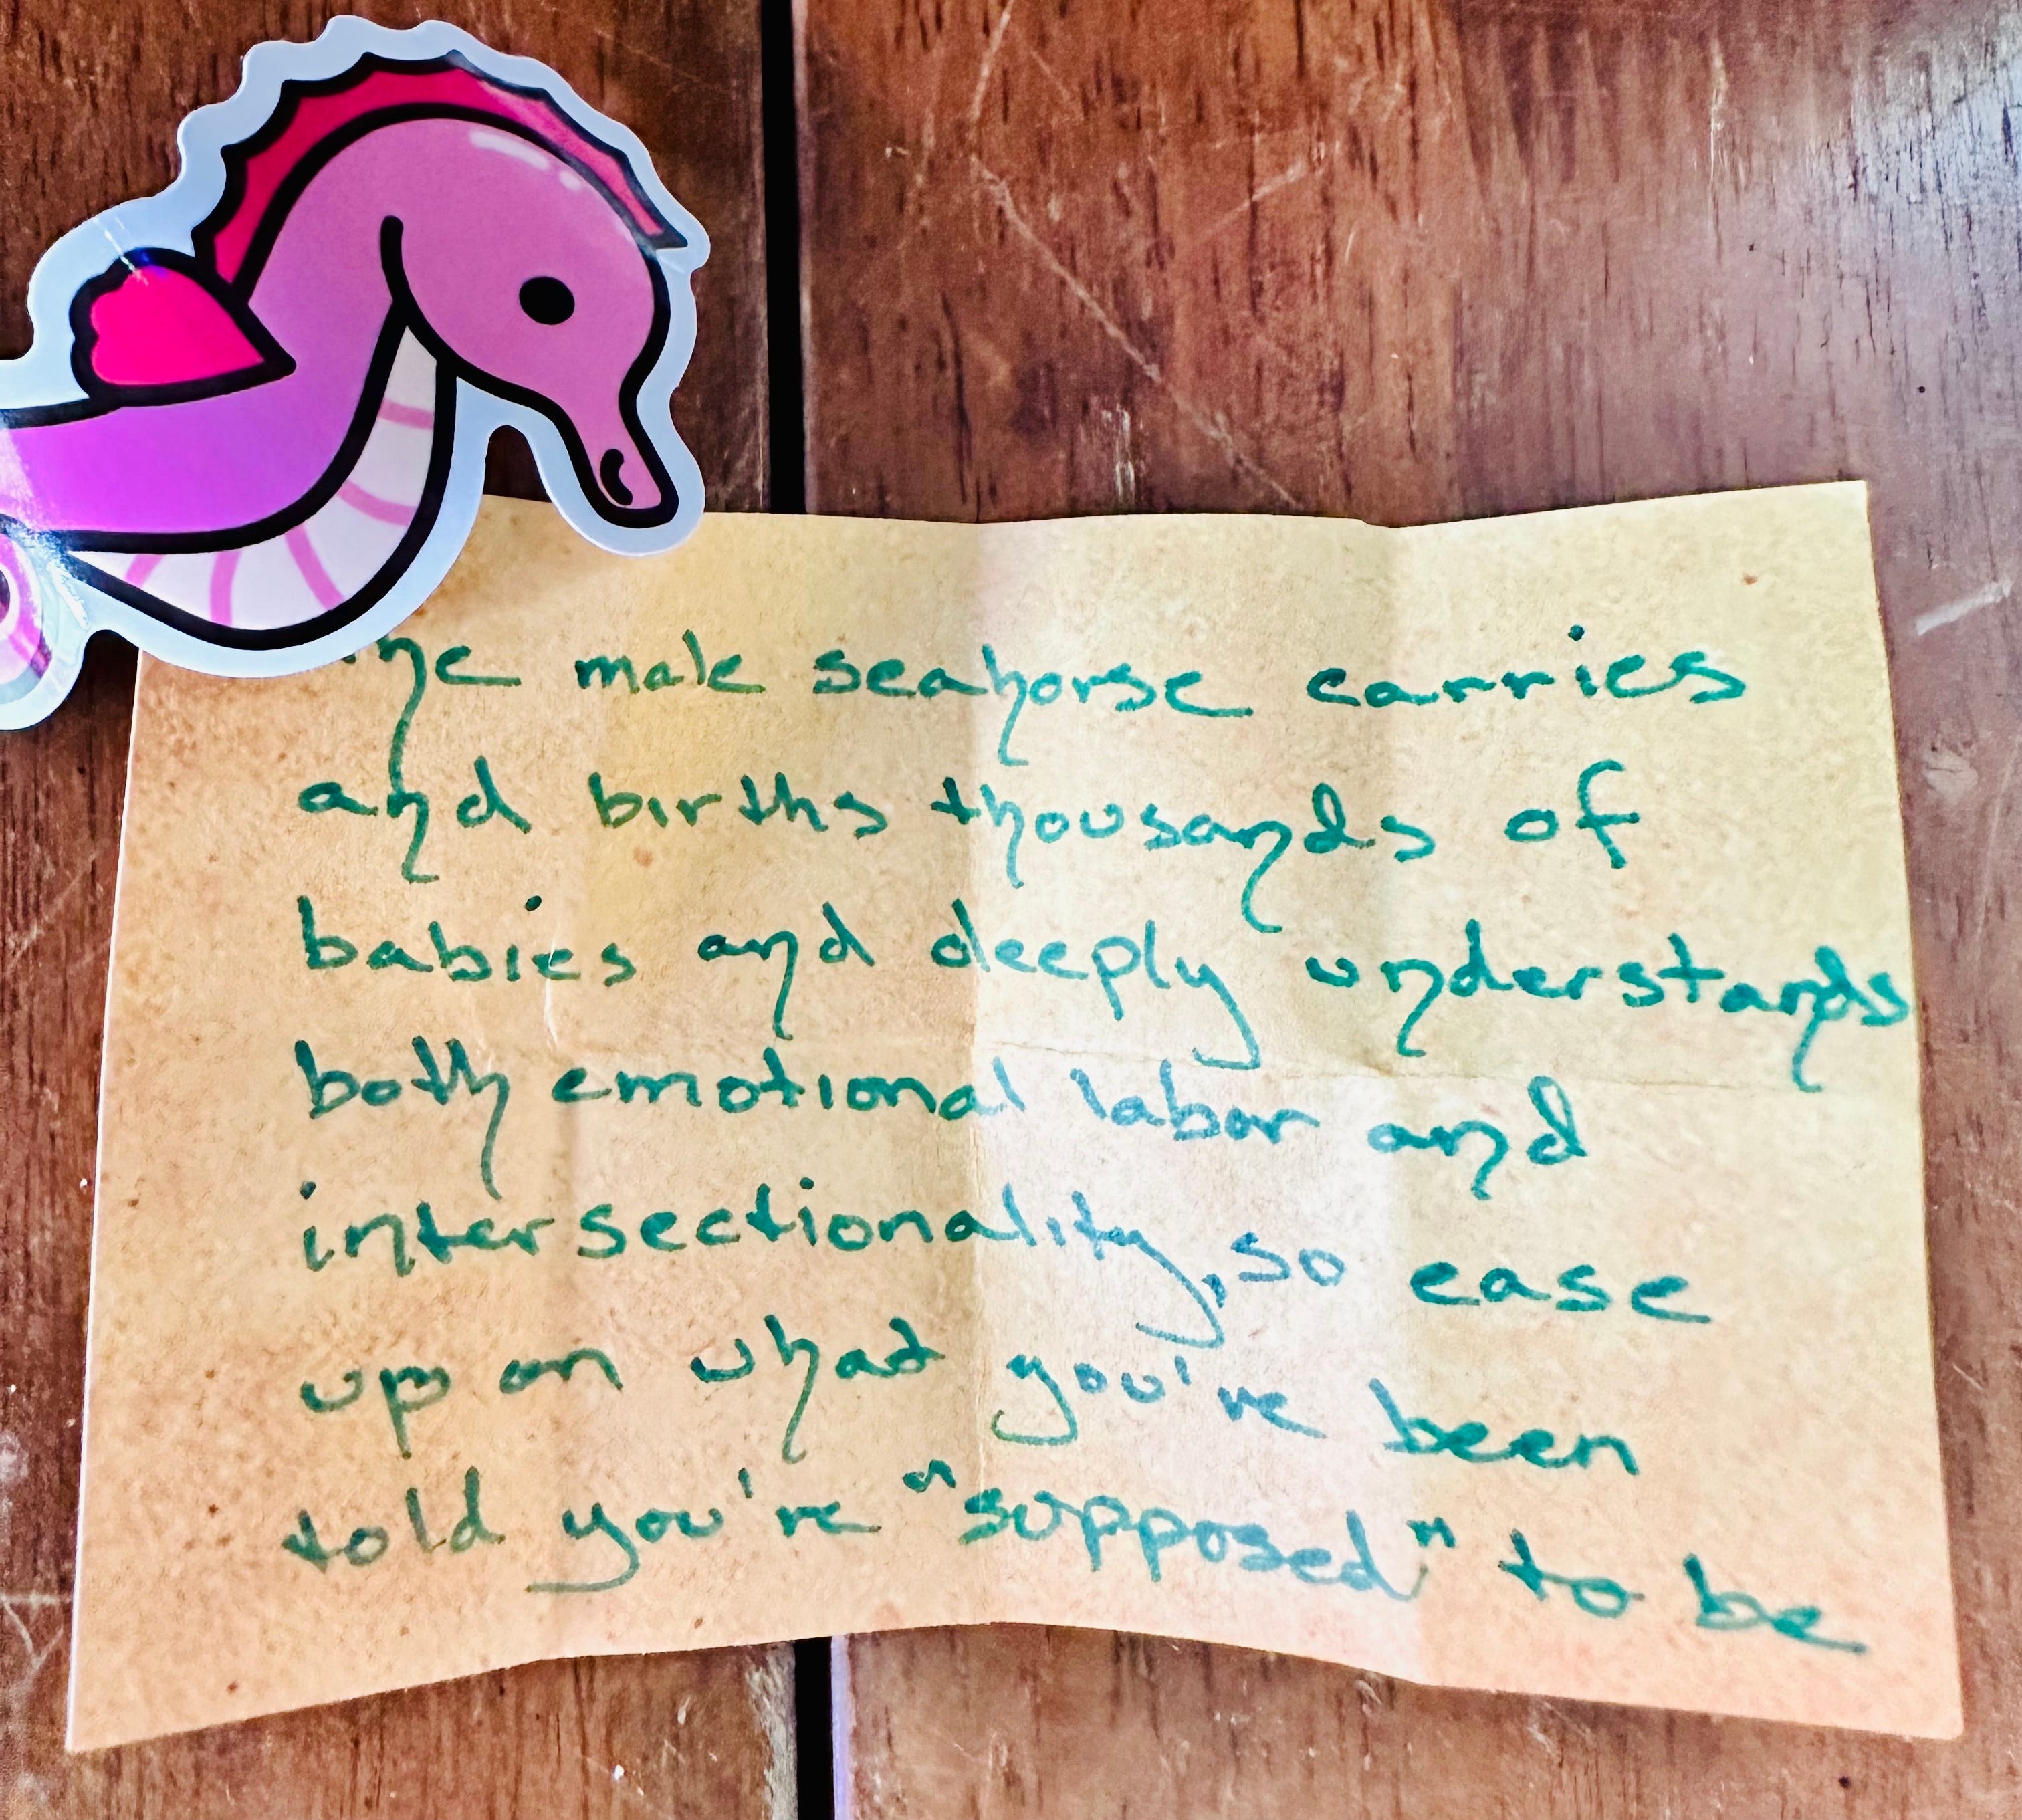 The male seahorse carries
and births thousands of
babies and deeply understands
both emotional labor and
intersectionality, so ease
up on what you're been
told you're "supposed" to be